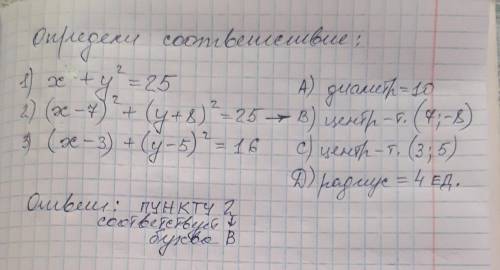 Определи соответствие:
1) x + y² = 25
A) диаметр = 10
2) (x-7)² + (y+8)² = 25 →
B) центр-т. (7;-8)
3) (x-3) + (y-5)² = 16
C) центр-т. (3;5)
D) радиус = 4 ЕД.
Ответ: ПУНКТУ 2
соответствует
буква B